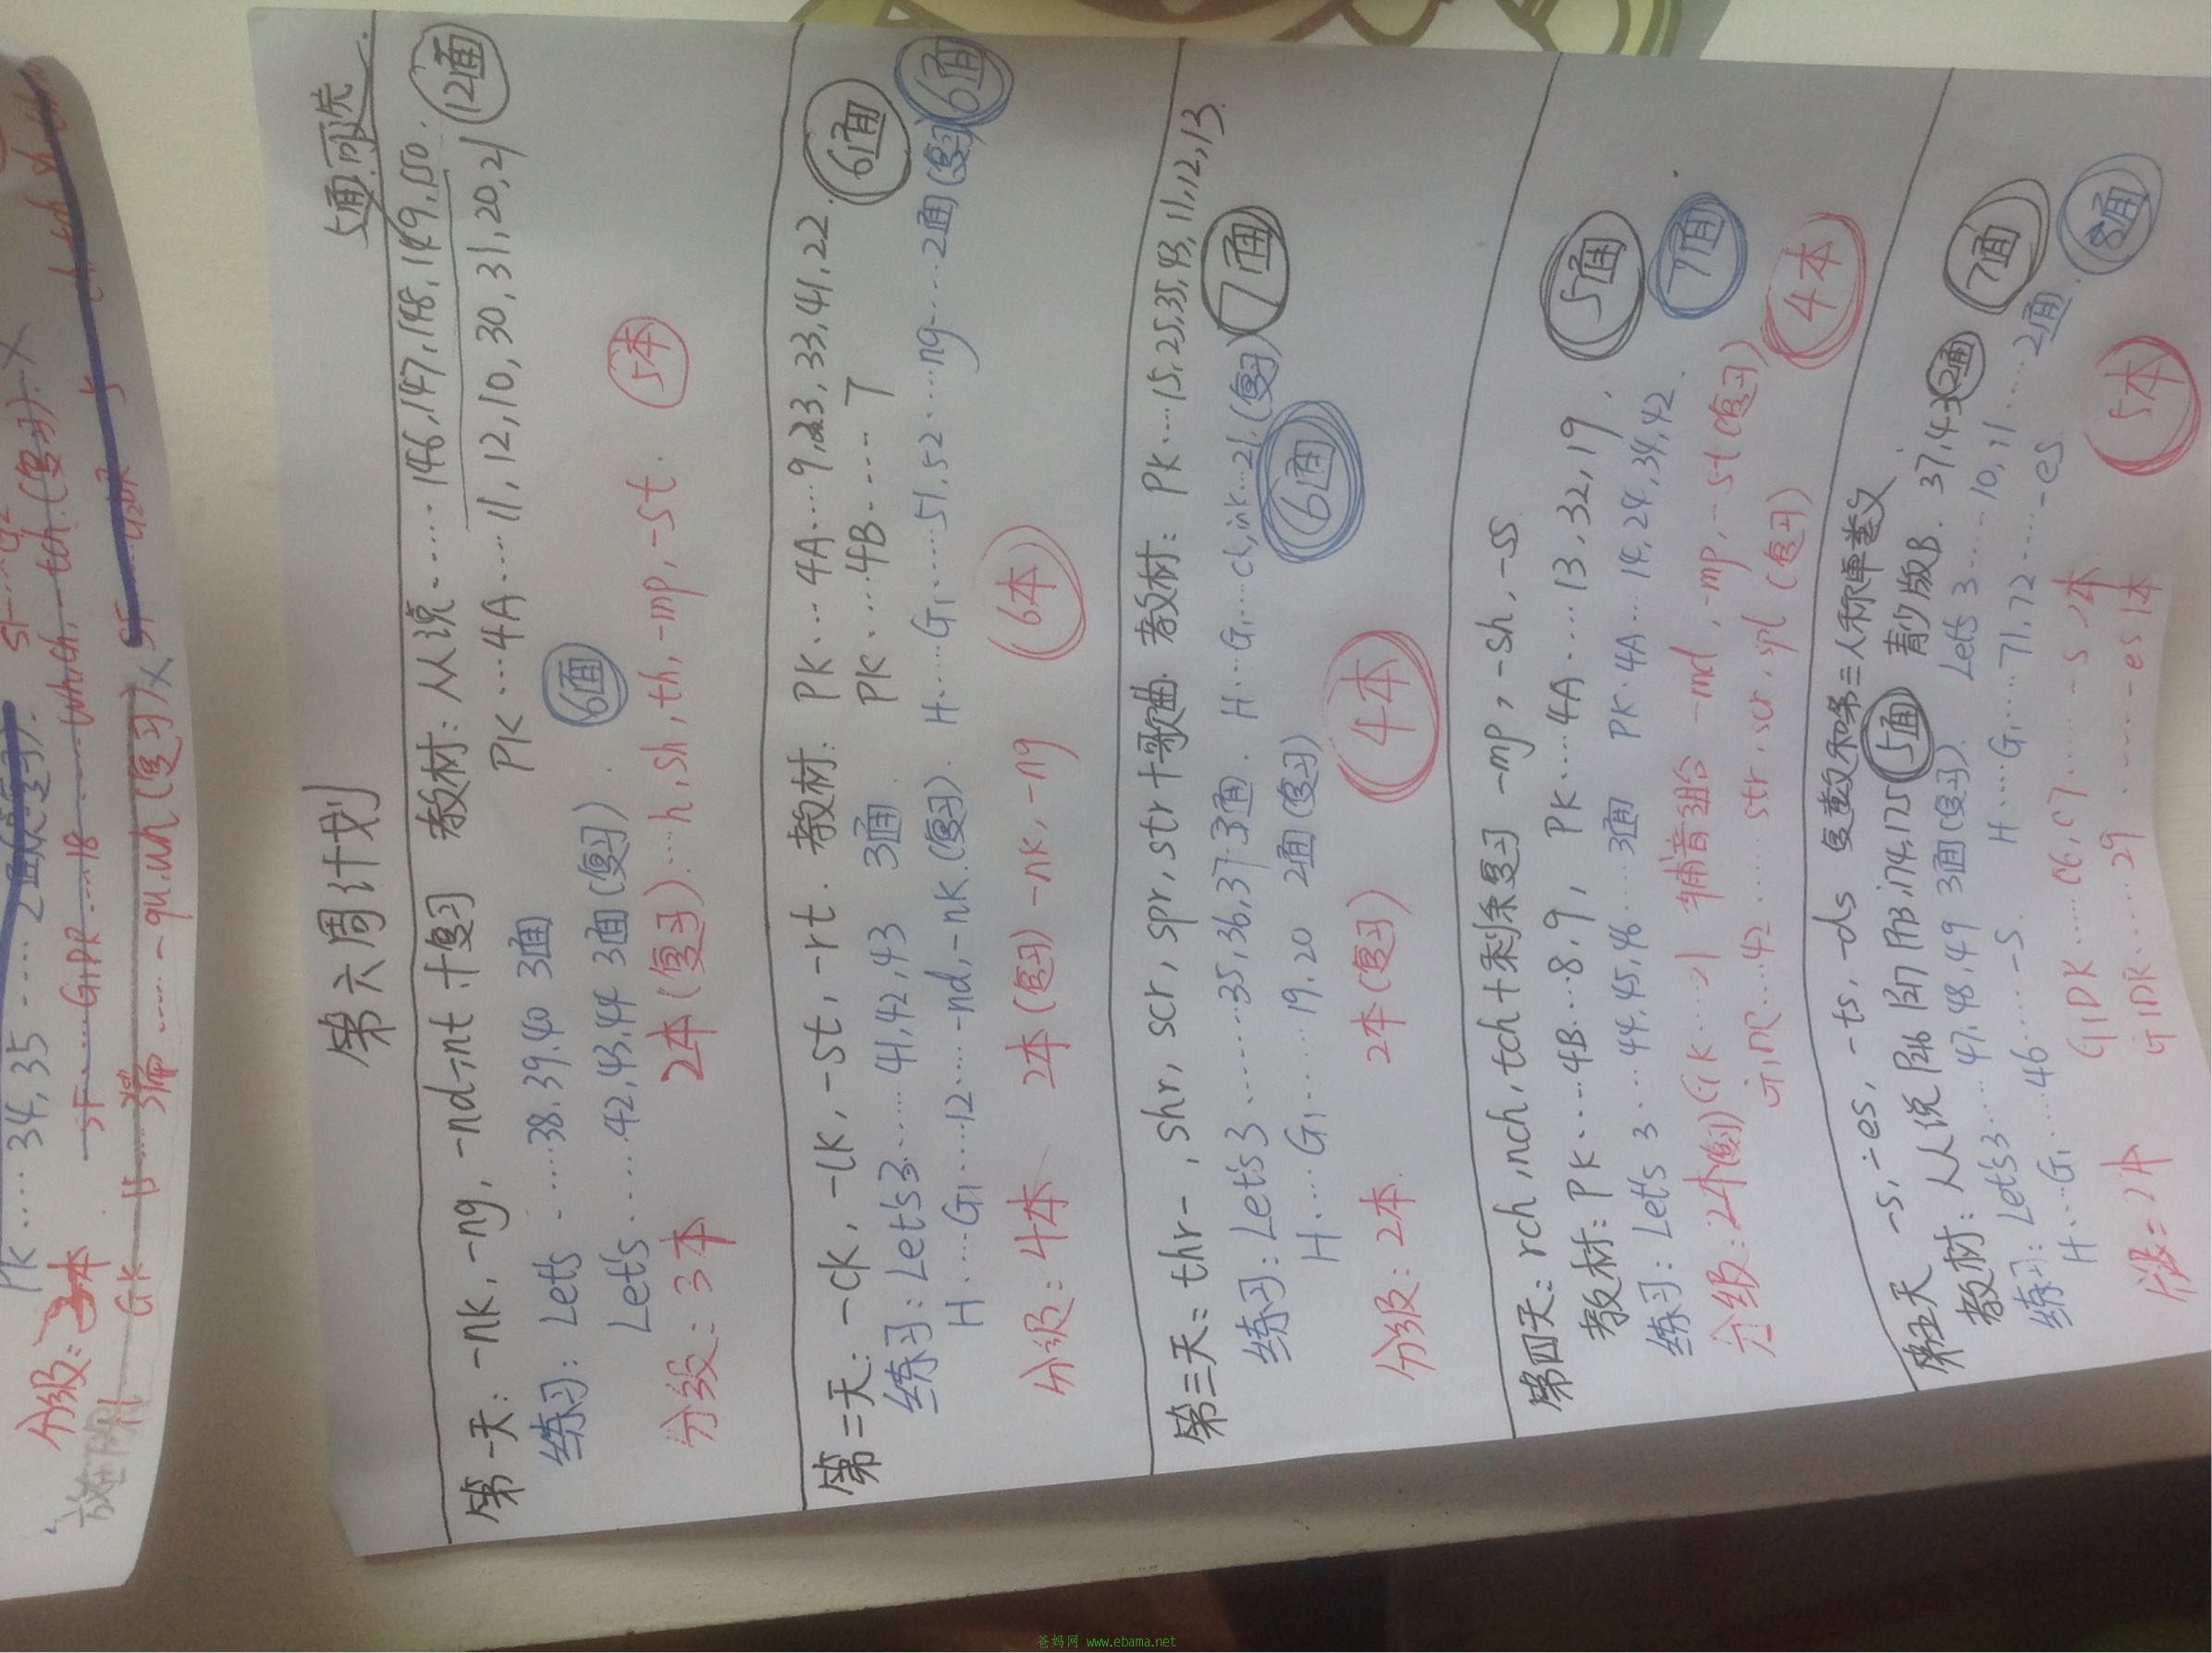 PK····34,35····2面(复习).
分级:2本
SF·····G1DR····18······which,-tch.(复习).X
GK ····-qu,wh(复习)X
第六周计划
5面.可选.
第一天: -nk,-ng,-nd-,nt+复习 教材:人人说·-····146,147,148,149,150. 12面
PK···4A····11,12,10,30,31,20,21
练习: Let's -·····38.39.40 3面
6面
Let's·····42,43,44 3面(复习).
分级:3本 2本(复习)····h,sh,th,-mp,-st. 5本
第二天: -ck,-lk,-st,-rt. 教材: PK···4A····9,23,33,41,22. 6面
PK····4B-···· 7
练习: Let's3······41,42,43 3面 H····G1·····51.52····ng····2面(复习) 6面
H····G1····12·····-nd,-nk.(复习).
分级:4本 2本(复习)-nk,-ng 6本
第三天: thr-,shr,scr,spr,str+歌曲. 教材: PK····15,25,35,43,11,12,13.
7面
练习: Let's3·······35,36,37·3面. H···G1·····ck,nk···21.(复习)
H·····G1·····19.20 2面(复习)
6面
分级:2本. 2本(复习)
4本
第四天: rch,nch,tch+剩余复习 -mp,-sh,-ss
教材:PK····4B···8.9, PK····4A·····13,32,19. 5面
练习: Let's 3····44.45.46·····3面 PK·4A···14,24,34,42. 7面
分级:2本(复习)GK····21 辅音组合 -nd,-mp,-st(复习)
G1DC····42······str,scr,spl(复习) 4本
第五天 -s,-es,-ts,-ds 复数和第三人称单数
教材:人人说 P26 P27 P173,174,175 5面 青少版B. 37,43 2面 7面
练习: Let's3·····47.48.49 3面(复习). Let's 3······10,11·····2面.
H···G1····46·····-s. H·····G1·····71,72·····-es 8面
分级:2本 G1DR·····C6,C7·······-s 2本
G1DR·····29········-es 1本 5本
爸妈网 www.ebama.net